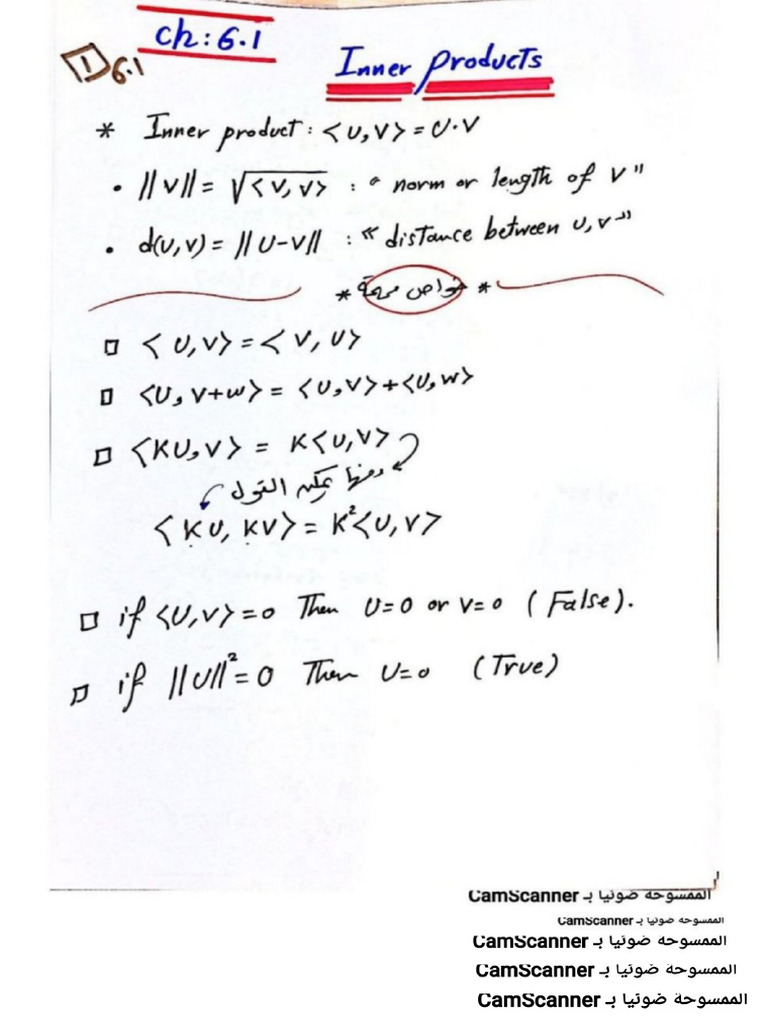 ch: 6.1
1 6.1
Inner products
* Inner product: <U,V> = U·V
• ||V|| = √<V,V> : " norm or length of V "
• d(U,V) = ||U-V|| : " distance between U,V "
* خواص مهمة *
□ <U,V> = <V,U>
□ <U, V+W> = <U,V> + <U,W>
□ <KU,V> = K<U,V>
ومنها يمكن القول
<KU, KV> = K²<U,V>
□ if <U,V> = 0 Then U=0 or V=0 (False).
□ if ||U||² = 0 Then U=0 (True)
الممسوحة ضوئيا بـ CamScanner
الممسوحة ضوئيا بـ CamScanner
الممسوحة ضوئيا بـ CamScanner
الممسوحة ضوئيا بـ CamScanner
الممسوحة ضوئيا بـ CamScanner